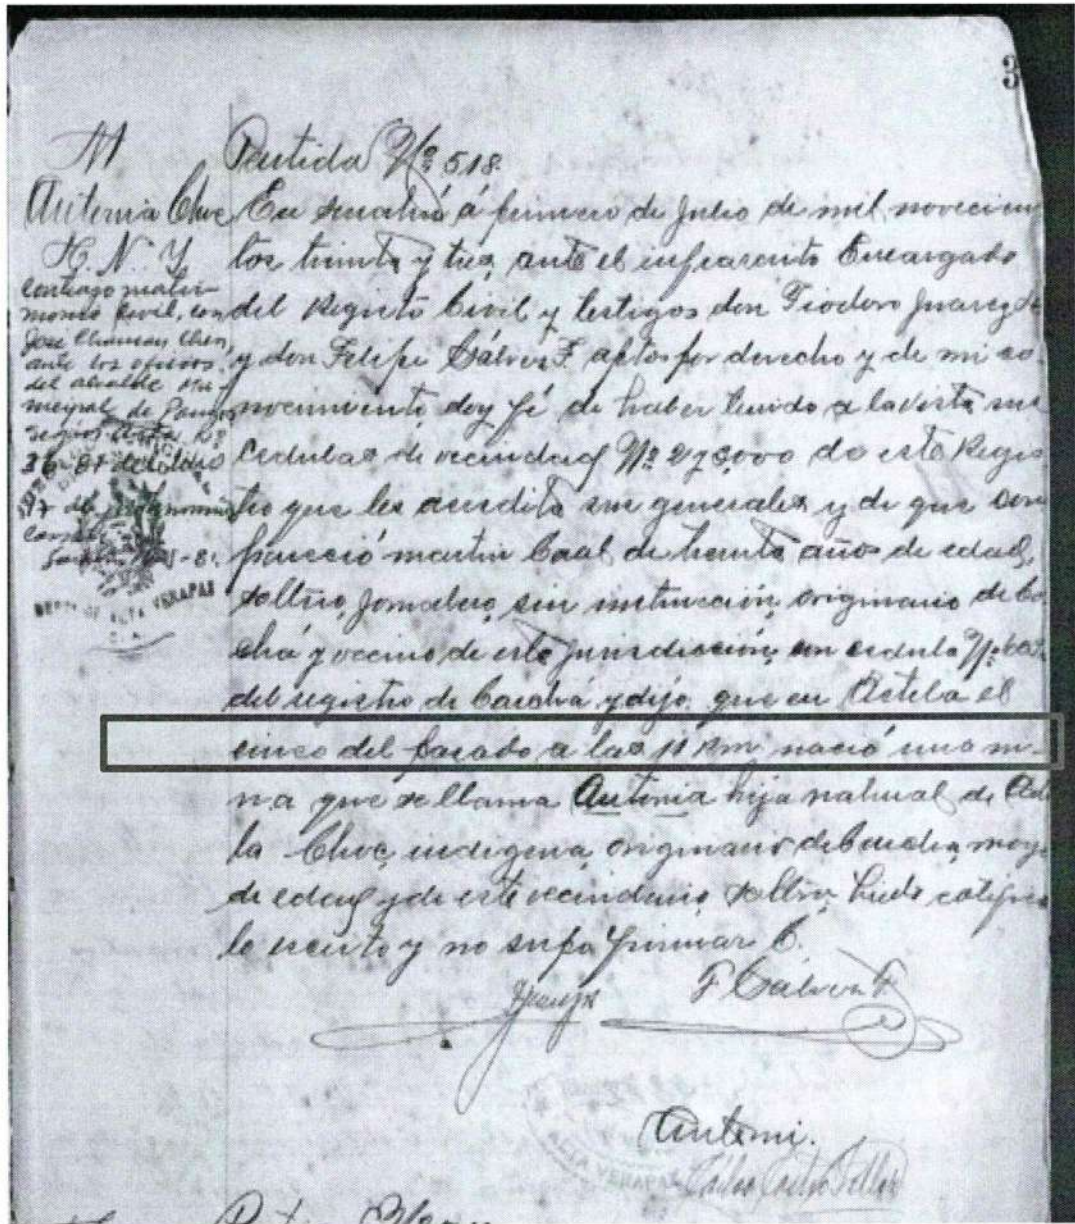 3
M
Antonia Choc
H. N. Y
Contrajo matri-
monio Civil, con
José
ante los oficios
del alcalde Mu-
nicipal de
según Acta No
36-87 del
97 de matrimonio
DEPTO DE ALTA VERAPAZ
C. A.
Partida No 518.
En Senahú á primero de Julio de mil novecien
tos treinta y tres, ante el infrascrito Encargado
del Registro Civil y testigos don Tiodoro Juarez
y don Felipe Gálvez F. aptos por derecho y de mi co-
nocimiento, doy fé de haber tenido a la vista sus
Cedulas de vecindad No de este Regis
tro que les acredita sus generales y de que com
pareció martin Caal de treinta años de edad,
soltero, Jornalero, sin instrucción, originario de Ca
chá y vecino de esta Jurisdicción, con cedula No
del registro de y dijo: que en Actela el
cinco del pasado a las 11 Am nació una ni-
na que se llama Antonia hija natural de
la Choc, indígena, originaria de mayor
de edad y de este vecindario, soltera, Leido ratificó
lo escrito y no supo firmar C.
Juarez F Gálvez F
Antemi.
ALTA VERAPAZ